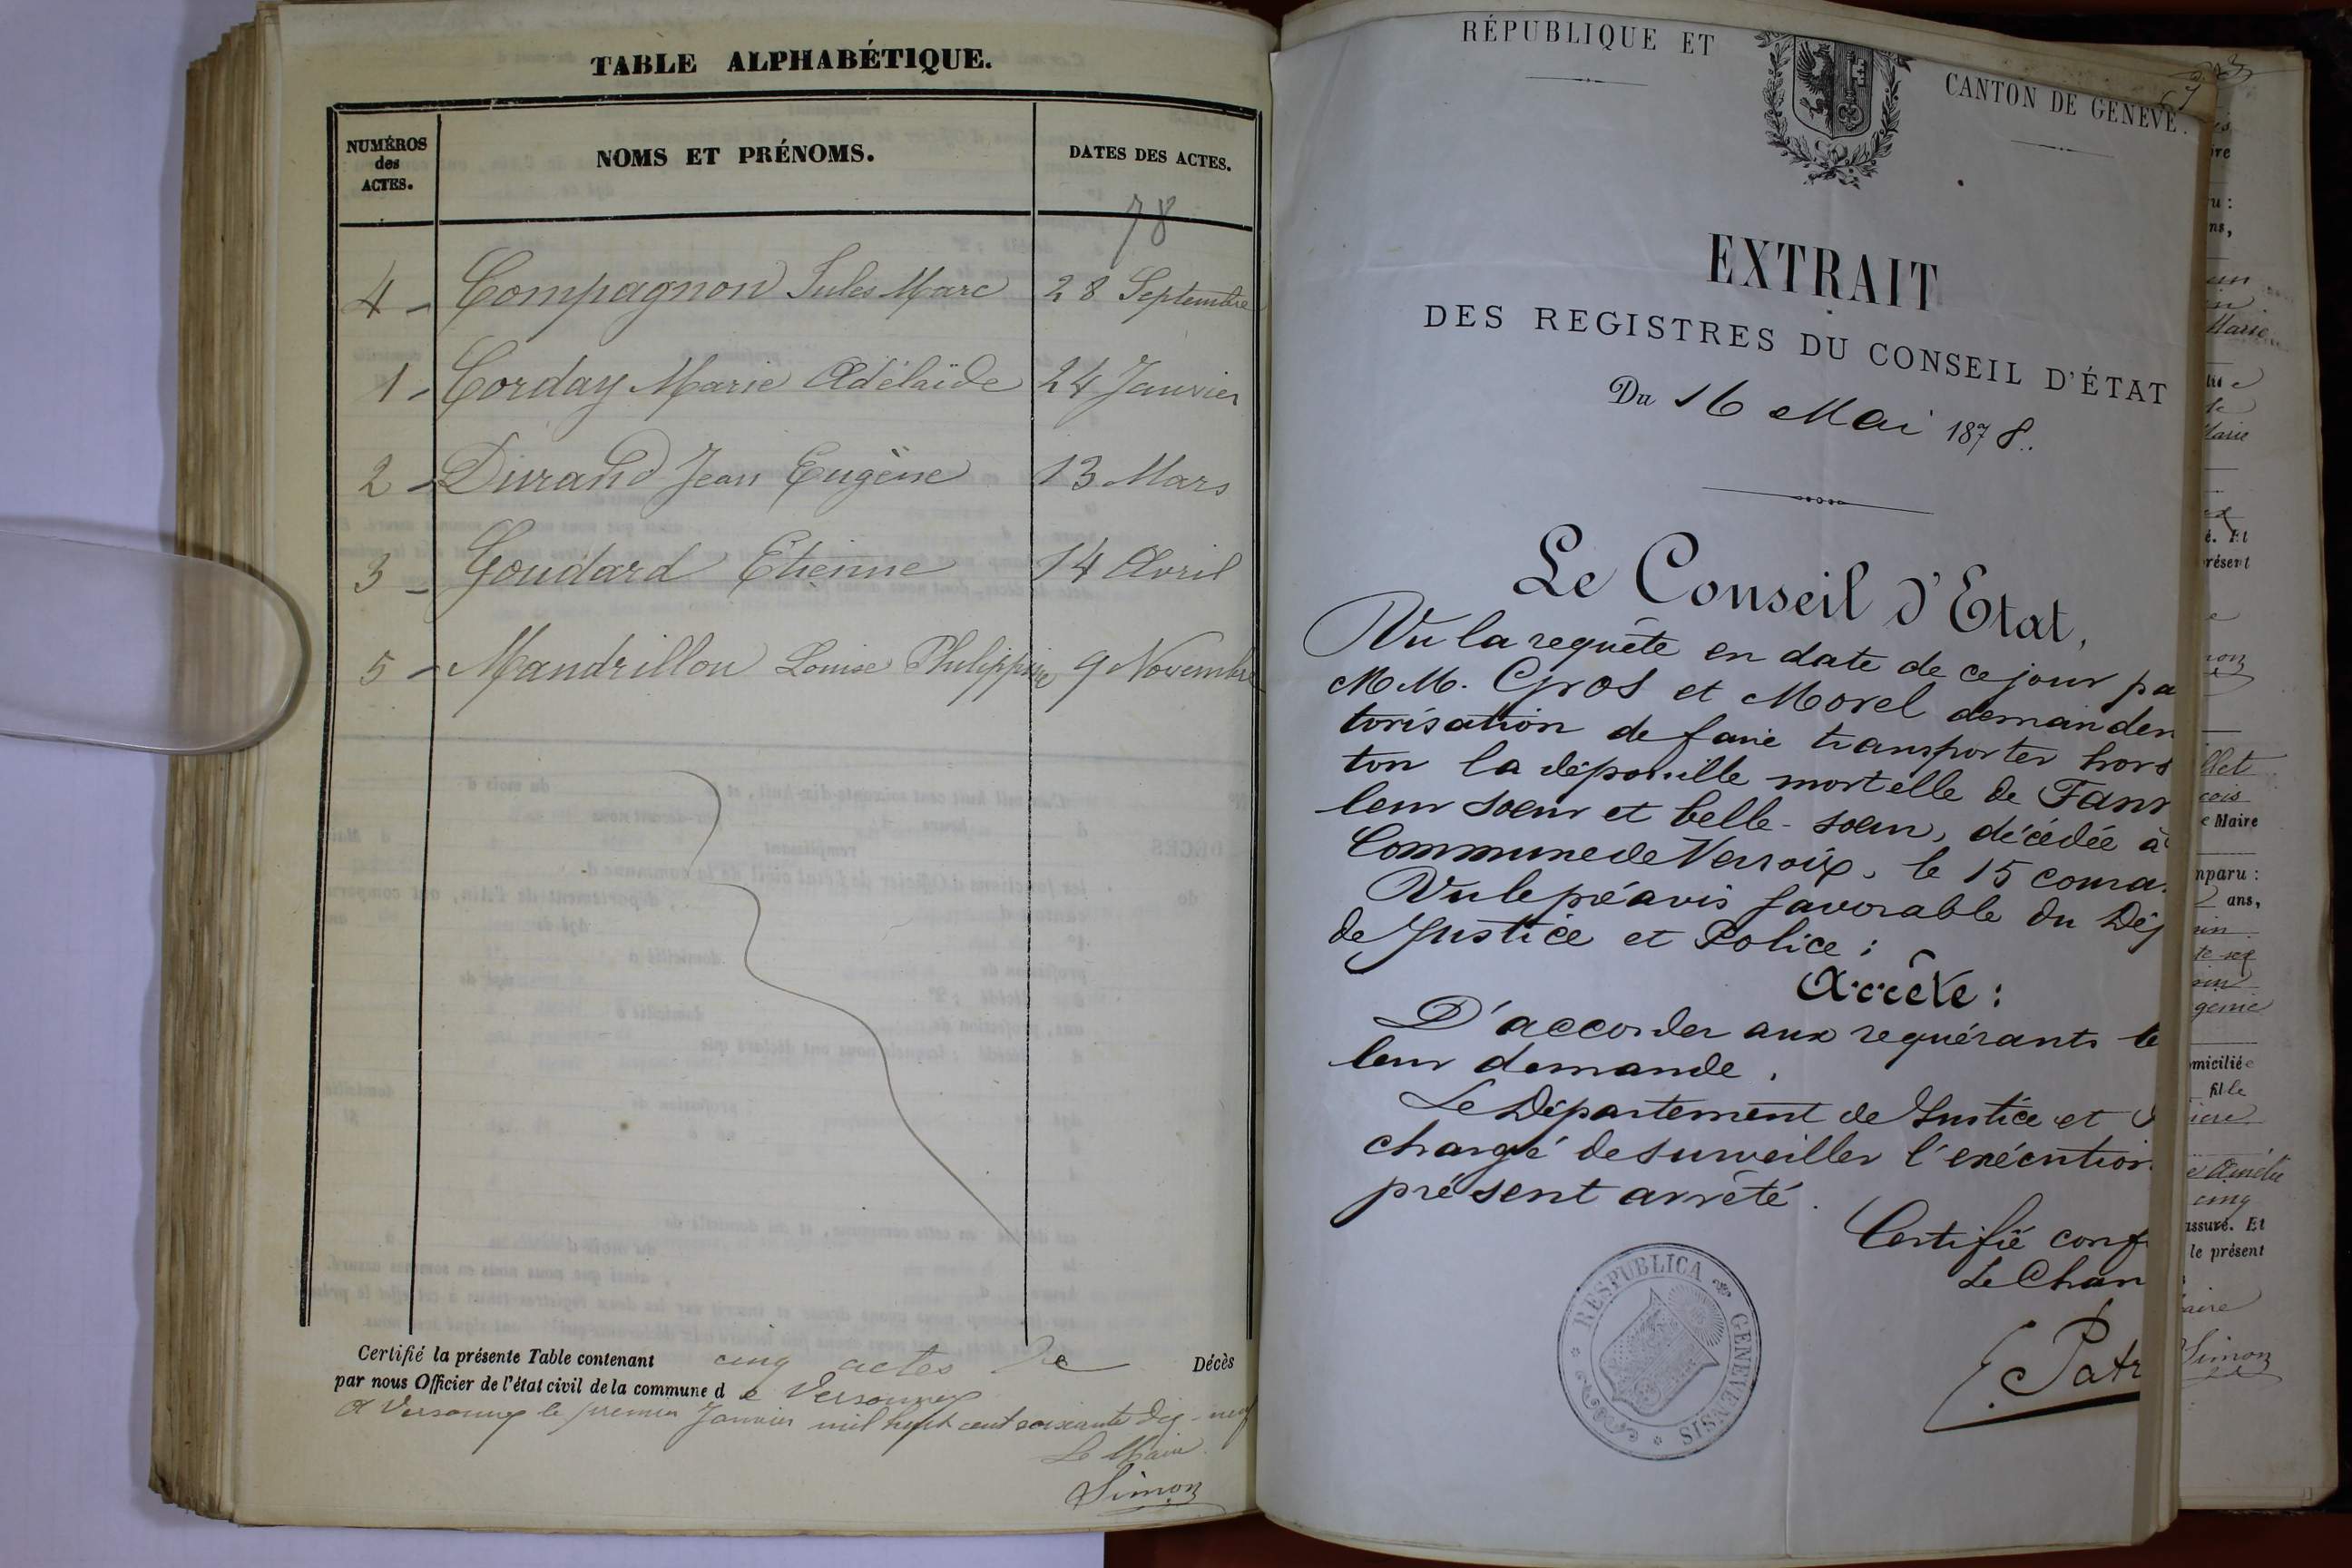 TABLE ALPHABÉTIQUE.
NUMÉROS
des
ACTES.
NOMS ET PRÉNOMS.
DATES DES ACTES.
78
4 - Compagnon Jules Marc 28 Septembre
1 - Corday Marie Adélaïde 24 Janvier
2 - Durand Jean Eugène 13 Mars
3 - Goudard Etienne 14 Avril
5 - Mandrillon Louise Philippine 9 Novembre
Certifié la présente Table contenant cinq actes de Décès
par nous Officier de l'état civil de la commune de Versonnex
A Versonnex le premier Janvier mil huit cent soixante dix-neuf
Le Maire
Simon
RÉPUBLIQUE ET CANTON DE GENÈVE.
EXTRAIT
DES REGISTRES DU CONSEIL D'ÉTAT
Du 16 Mai 1878.
Le Conseil d'Etat,
Vu la requête en date de ce jour pa
M.M. Gros et Morel demanden
torisation de faire transporter hors
ton la dépouille mortelle de Fann
leur soeur et belle-soeur, décédée à
Commune de Versoix, le 15 coura
Vu le préavis favorable du Dép
de Justice et Police ;
Arrête :
D'accorder aux requérants le
leur demande.
Le Département de Justice et
chargé de surveiller l'exécution
présent arrêté.
Certifié conf
Le Chan
E. Patr
RESPUBLICA GENEVENSIS
ire
u :
ns,
un
in
Marie
de
Marie
é. Et
résent
llet
çois
e Maire
mparu :
ans,
in
génie
omiciliée
fille
Amélie
cinq
assuré. Et
le présent
aire
Simon